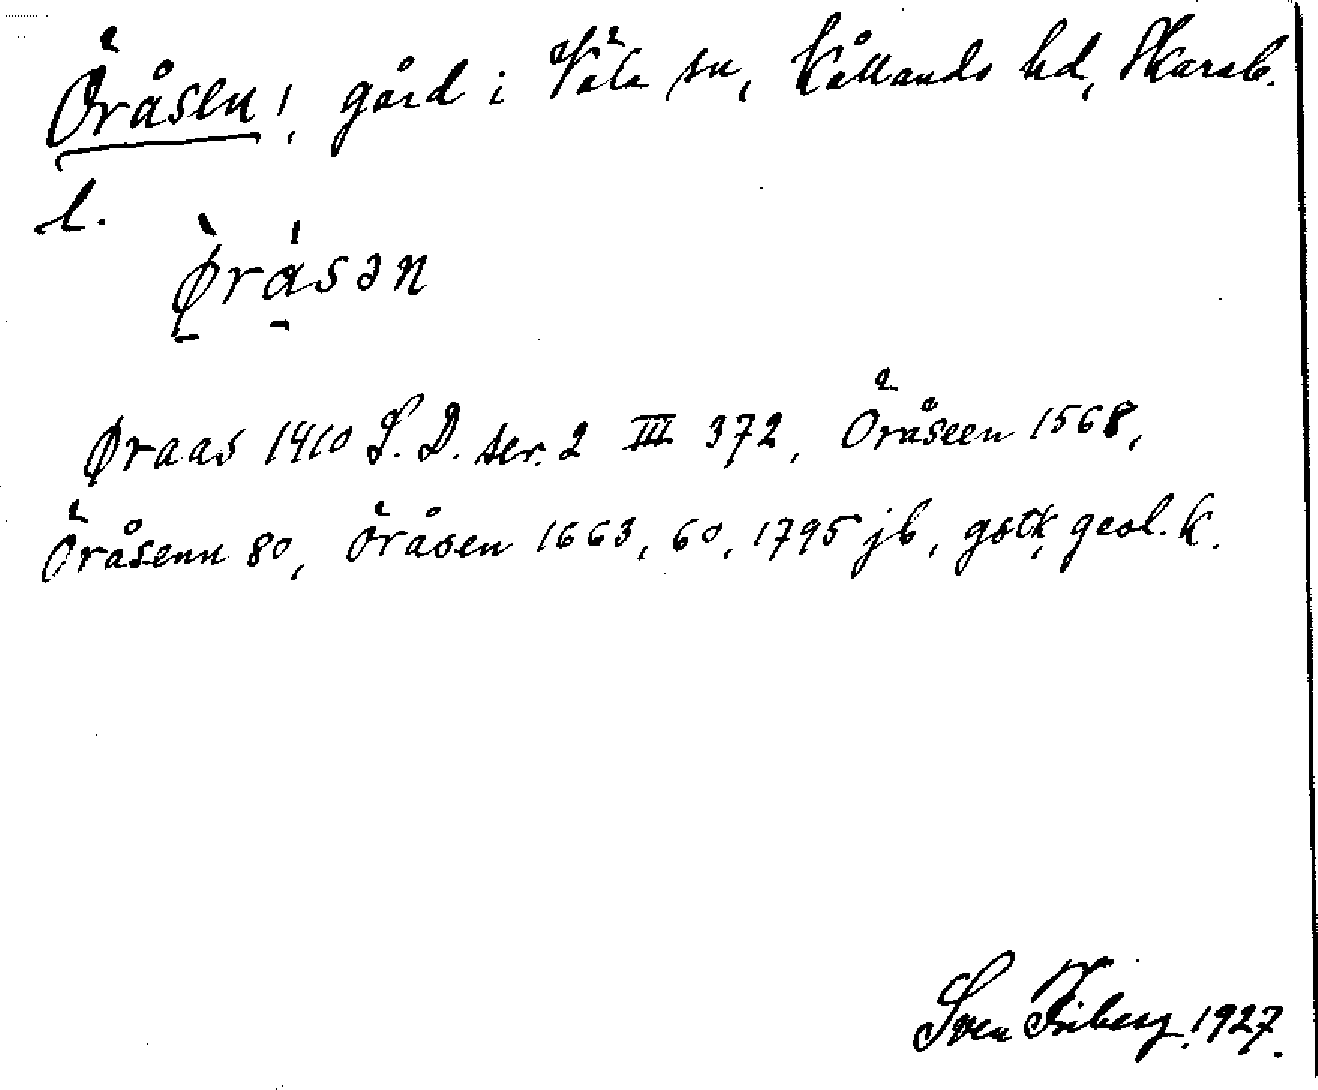 Öråsen!, gård i Väla sn, Kållands hd, Skarab.
l.
Ø̀rásən
Øraas 1410 S. D. ser. 2 III 372, Öråseen 1568,
Öråsenn 80, Öråsen 1663, 60, 1795 jb, gstk, geol. k.
Sven Friberg 1927.